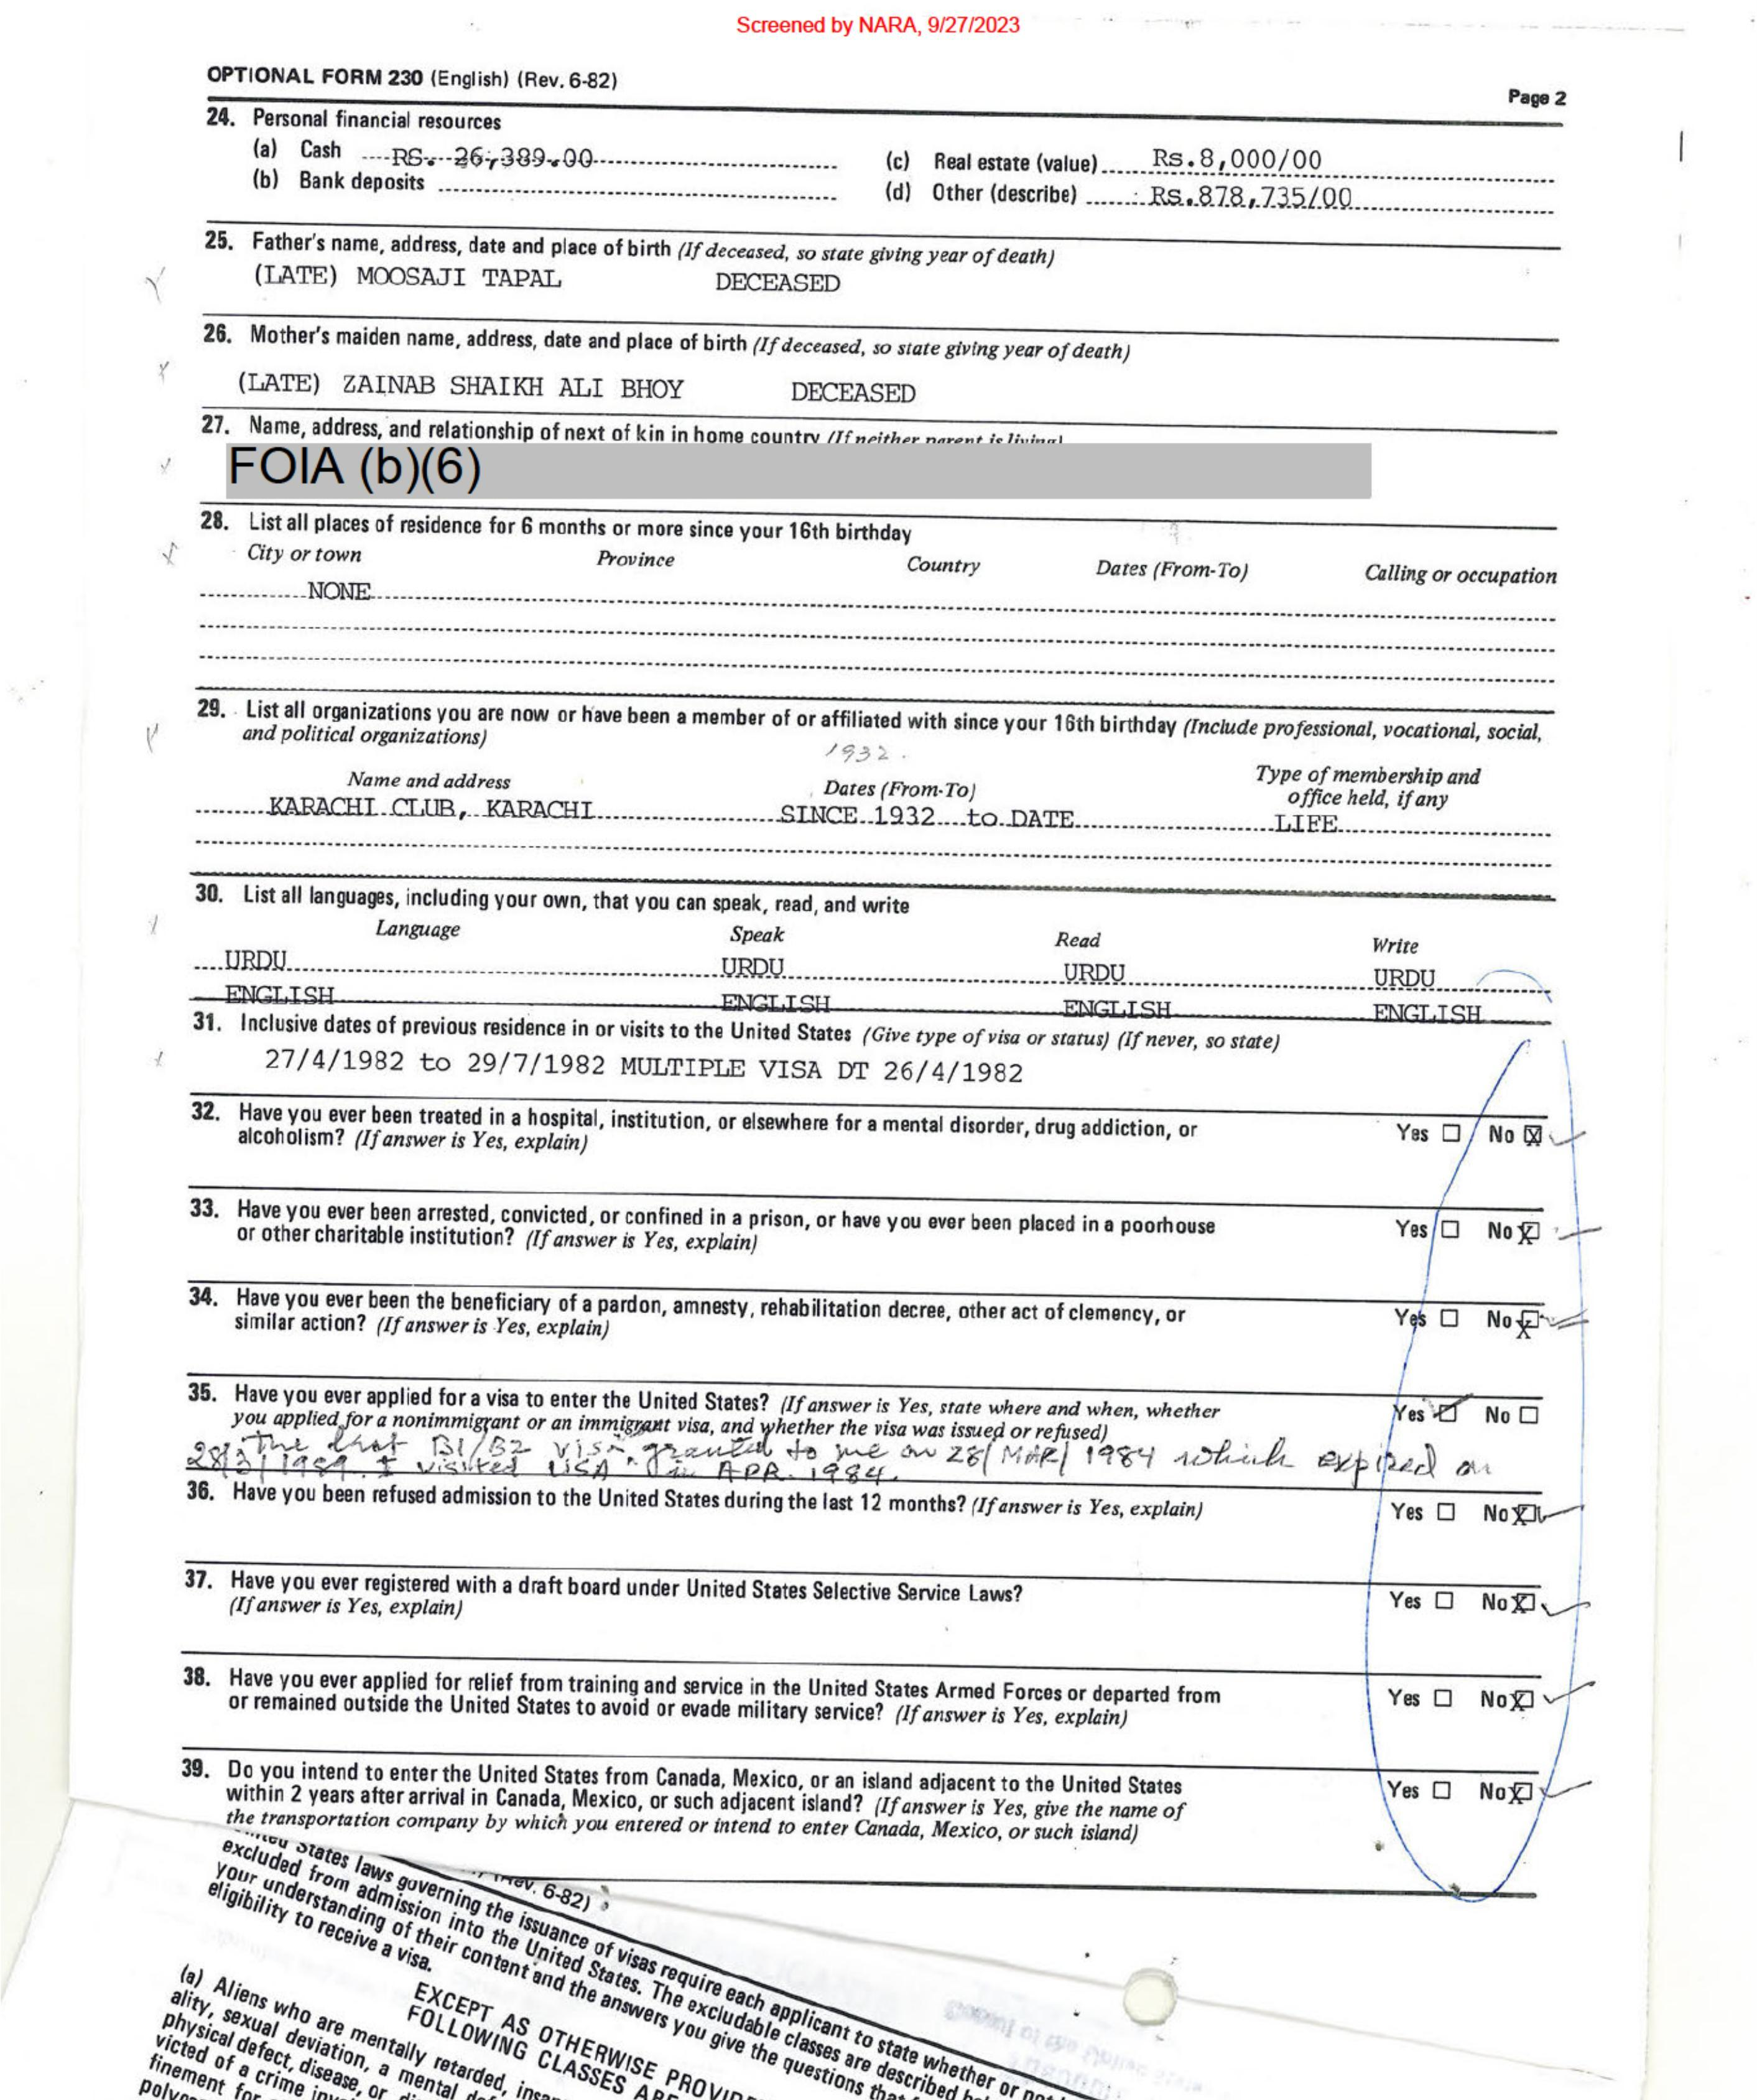 Screened by NARA, 9/27/2023
OPTIONAL FORM 230 (English) (Rev. 6-82)
Page 2
24. Personal financial resources
(a) Cash RS. 26,389.00
(c) Real estate (value) Rs.8,000/00
(b) Bank deposits
(d) Other (describe) Rs.878,735/00
25. Father's name, address, date and place of birth (If deceased, so state giving year of death)
(LATE) MOOSAJI TAPAL DECEASED
26. Mother's maiden name, address, date and place of birth (If deceased, so state giving year of death)
(LATE) ZAINAB SHAIKH ALI BHOY DECEASED
27. Name, address, and relationship of next of kin in home country (If neither parent is living)
FOIA (b)(6)
28. List all places of residence for 6 months or more since your 16th birthday
City or town Province Country Dates (From-To) Calling or occupation
NONE
29. List all organizations you are now or have been a member of or affiliated with since your 16th birthday (Include professional, vocational, social,
and political organizations)
1932.
Name and address Dates (From-To) Type of membership and
office held, if any
KARACHI CLUB, KARACHI SINCE 1932 to DATE LIFE
30. List all languages, including your own, that you can speak, read, and write
Language Speak Read Write
URDU URDU URDU URDU
ENGLISH ENGLISH ENGLISH ENGLISH
31. Inclusive dates of previous residence in or visits to the United States (Give type of visa or status) (If never, so state)
27/4/1982 to 29/7/1982 MULTIPLE VISA DT 26/4/1982
32. Have you ever been treated in a hospital, institution, or elsewhere for a mental disorder, drug addiction, or
alcoholism? (If answer is Yes, explain)
Yes ☐ No ☒
33. Have you ever been arrested, convicted, or confined in a prison, or have you ever been placed in a poorhouse
or other charitable institution? (If answer is Yes, explain)
Yes ☐ No ☒
34. Have you ever been the beneficiary of a pardon, amnesty, rehabilitation decree, other act of clemency, or
similar action? (If answer is Yes, explain)
Yes ☐ No ☒
35. Have you ever applied for a visa to enter the United States? (If answer is Yes, state where and when, whether
you applied for a nonimmigrant or an immigrant visa, and whether the visa was issued or refused)
Yes ☑ No ☐
The last B1/B2 visa granted to me on 28/MAR/1984 which expired on
28/3/1989. I visited USA in APR. 1984.
36. Have you been refused admission to the United States during the last 12 months? (If answer is Yes, explain)
Yes ☐ No ☒
37. Have you ever registered with a draft board under United States Selective Service Laws?
(If answer is Yes, explain)
Yes ☐ No ☒
38. Have you ever applied for relief from training and service in the United States Armed Forces or departed from
or remained outside the United States to avoid or evade military service? (If answer is Yes, explain)
Yes ☐ No ☒
39. Do you intend to enter the United States from Canada, Mexico, or an island adjacent to the United States
within 2 years after arrival in Canada, Mexico, or such adjacent island? (If answer is Yes, give the name of
the transportation company by which you entered or intend to enter Canada, Mexico, or such island)
Yes ☐ No ☒
6-82)
States laws governing the issuance of visas require each applicant to state whether or
excluded from admission into the United States. The excludable classes are described
your understanding of their content and the answers you give the questions
eligibility to receive a visa.
EXCEPT AS OTHERWISE
FOLLOWING CLASSES
(a) Aliens who are mentally retarded,
ality, sexual deviation, a mental
physical defect, disease, or
victed of a crime
finement for